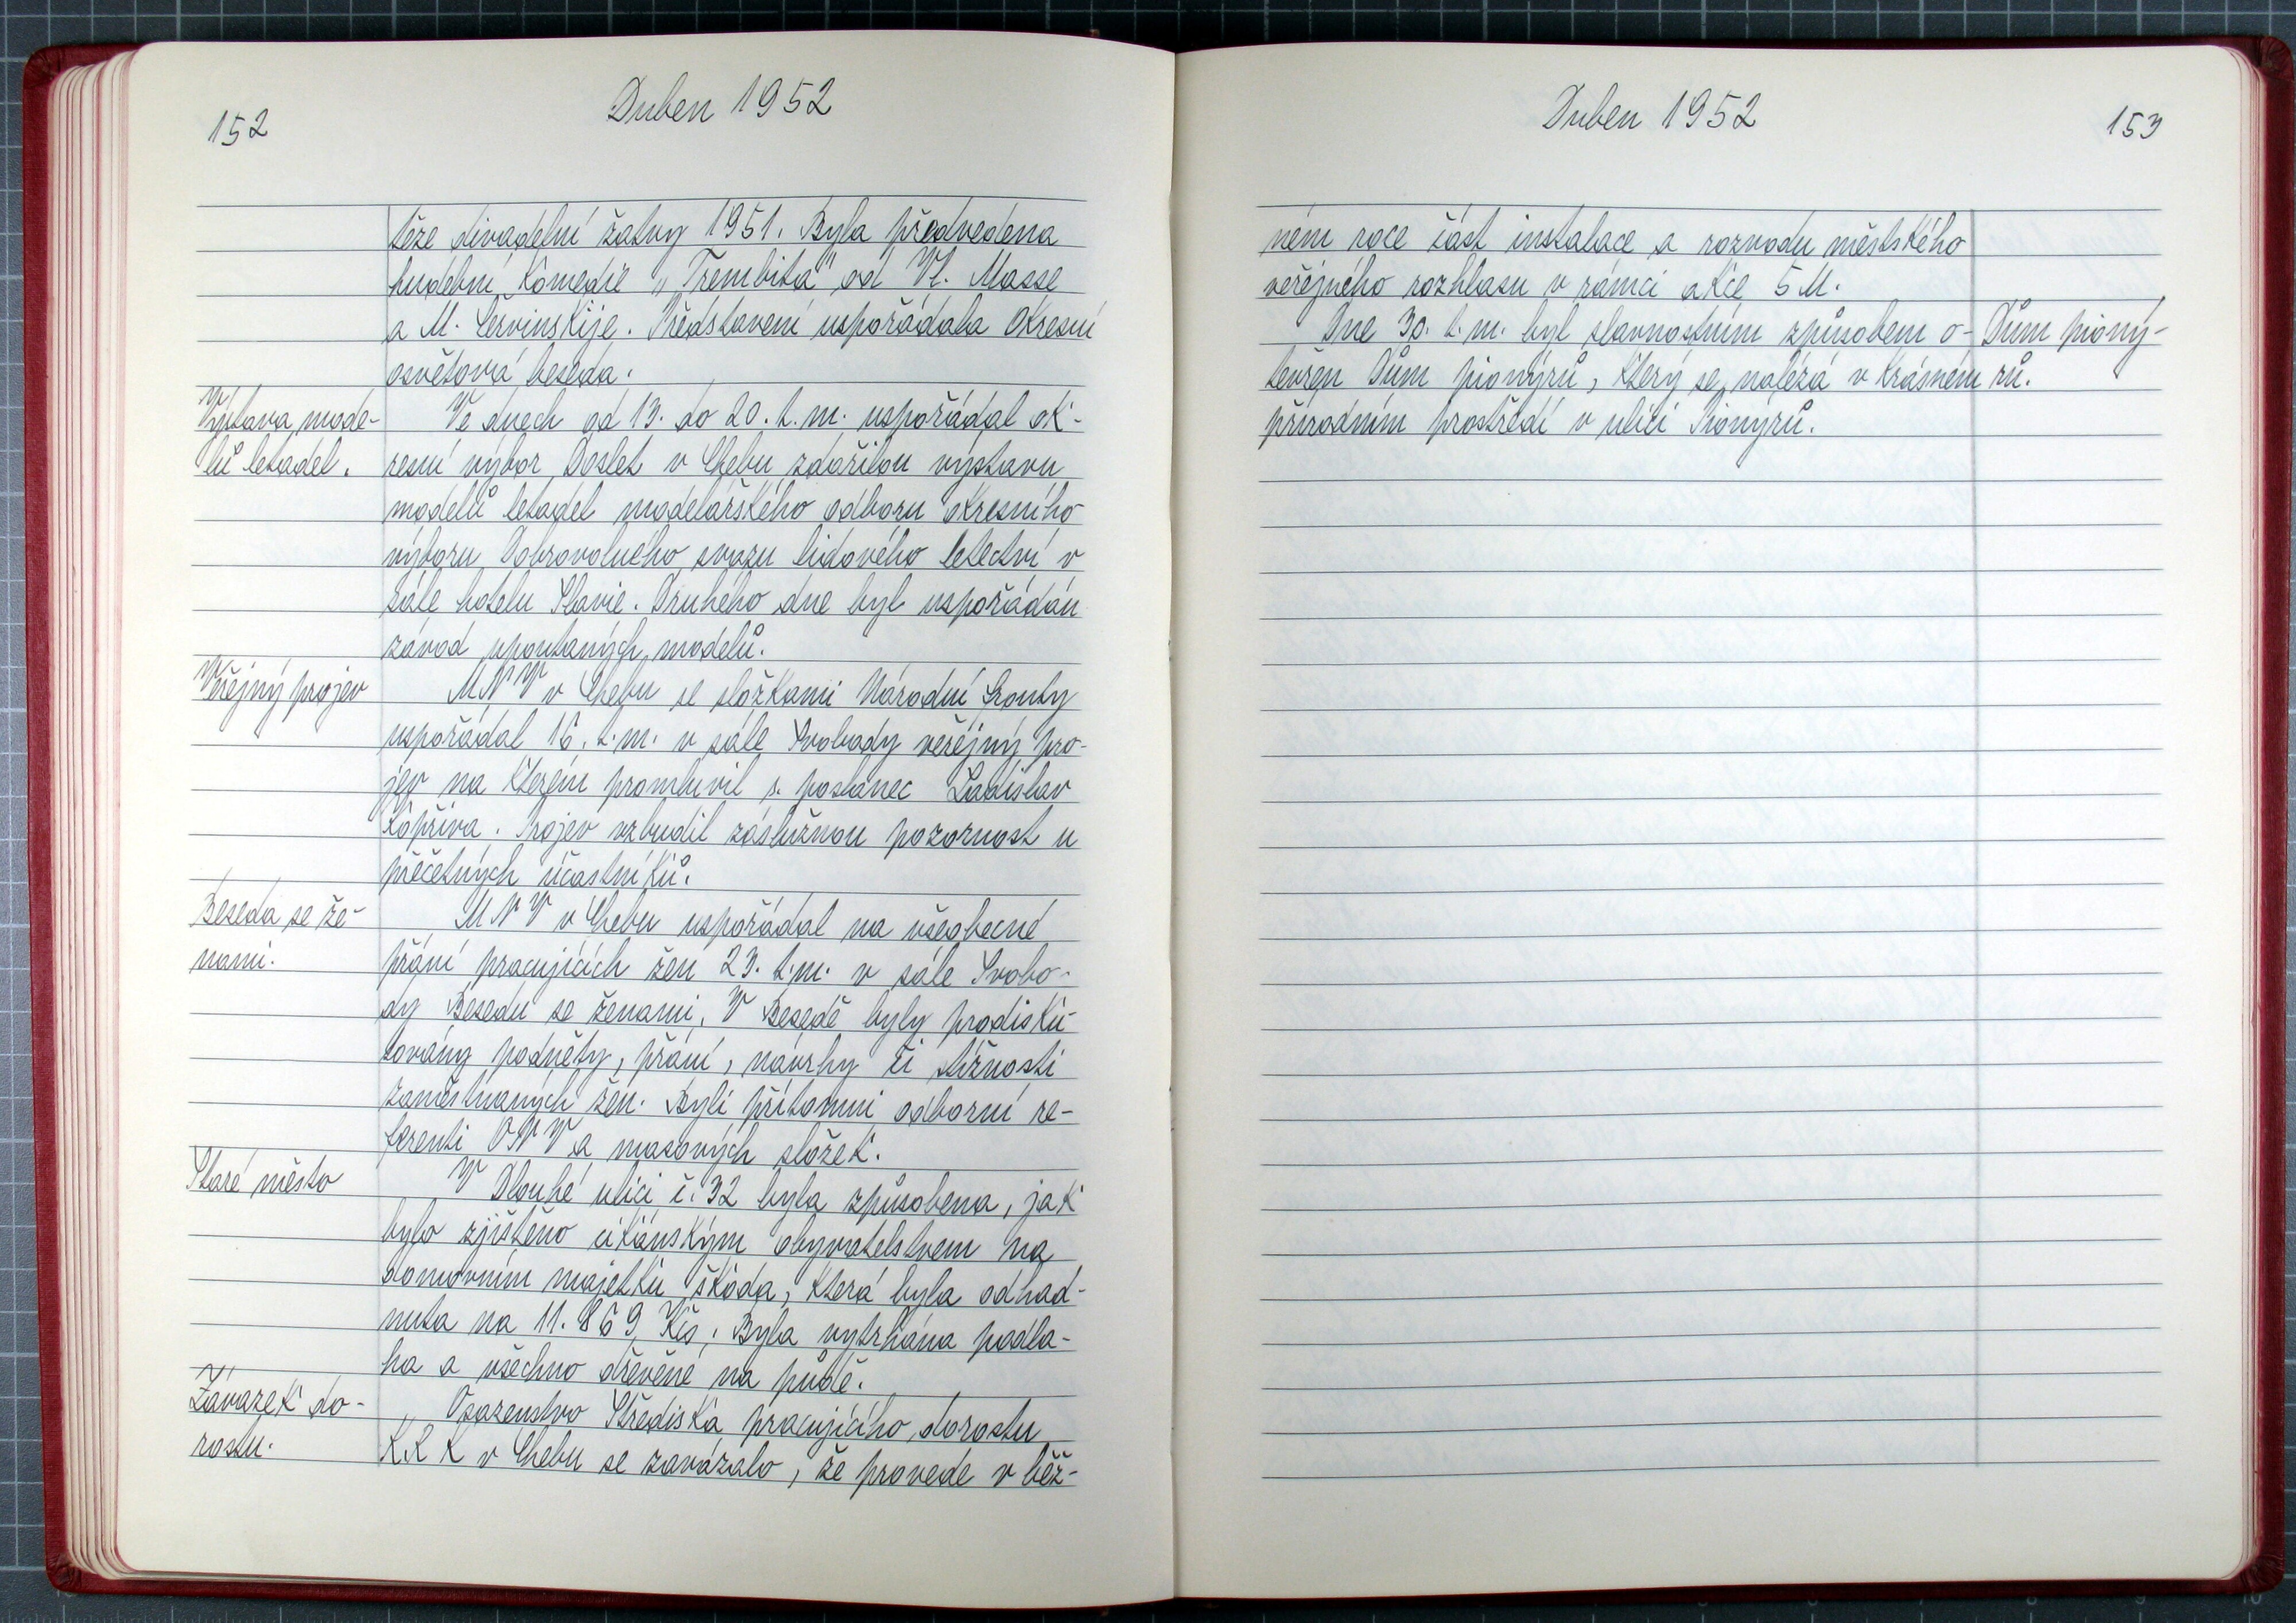 152
Duben 1952
těže divadelní žatvy 1951. Byla předvedena
hudební komedie „Trembita" od Vl. Masse
a M. Červinskije. Představení uspořádala Okresní
osvětová beseda.
Výstava mode-
lů letadel.
Ve dnech od 13. do 20. t.m. uspořádal ok-
resní výbor Doslet v Chebu zdařilou výstavu
modelů letadel modelářského odboru okresního
výboru Dobrovolného svazu lidového letectví v
sále hotelu Slavie. Druhého dne byl uspořádán
závod upoutaných modelů.
Veřejný projev
MNV v Chebu se složkami Národní fronty
uspořádal 16. t.m. v sále Svobody veřejný pro-
jev na kterém promluvil s. poslanec Ladislav
Kopřiva. Projev vzbudil záslužnou pozornost u
přečetných účastníků.
Beseda se že-
nami.
MNV v Chebu uspořádal na všeobecné
přání pracujících žen 23. t.m. v sále Svobo-
dy Besedu se ženami. V Besedě byly prodisku-
továny podněty, přání, návrhy či stížnosti
zaměstnaných žen. Byli přítomni odborní re-
ferenti ONV a masových složek.
Staré město
V Dlouhé ulici č. 32 byla způsobena, jak
bylo zjištěno cikánským obyvatelstvem na
domovním majetku škoda, která byla odhad-
nuta na 11.869 Kčs. Byla vytrhána podla-
ha a všechno dřevěné na půdě.
Závazek do-
rostu.
Osazenstvo Střediska pracujícího dorostu
KKK v Chebu se zavázalo, že provede v běž-
Duben 1952
153
ném roce část instalace a rozvodu městského
veřejného rozhlasu v rámci akce 5M.
Dne 30. t.m. byl slavnostním způsobem o-
tevřen Dům pionýrů, který se nalézá v krásném
přírodním prostředí v ulici Pionýrů.
Dům pioný-
rů.